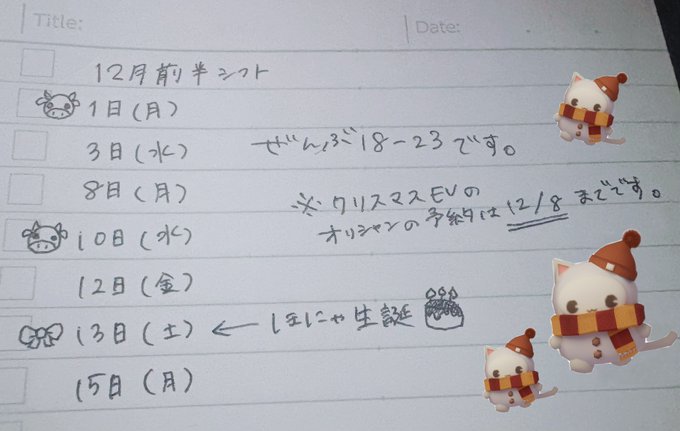 Title:
Date:
12月前半シフト
1日(月)
3日(水)
ぜんぶ18-23です。
8日(月)
※クリスマスEVの
オリシャンの予約は12/8までです。
10日(水)
12日(金)
13日(土) ← ほにゃ生誕
15日(月)